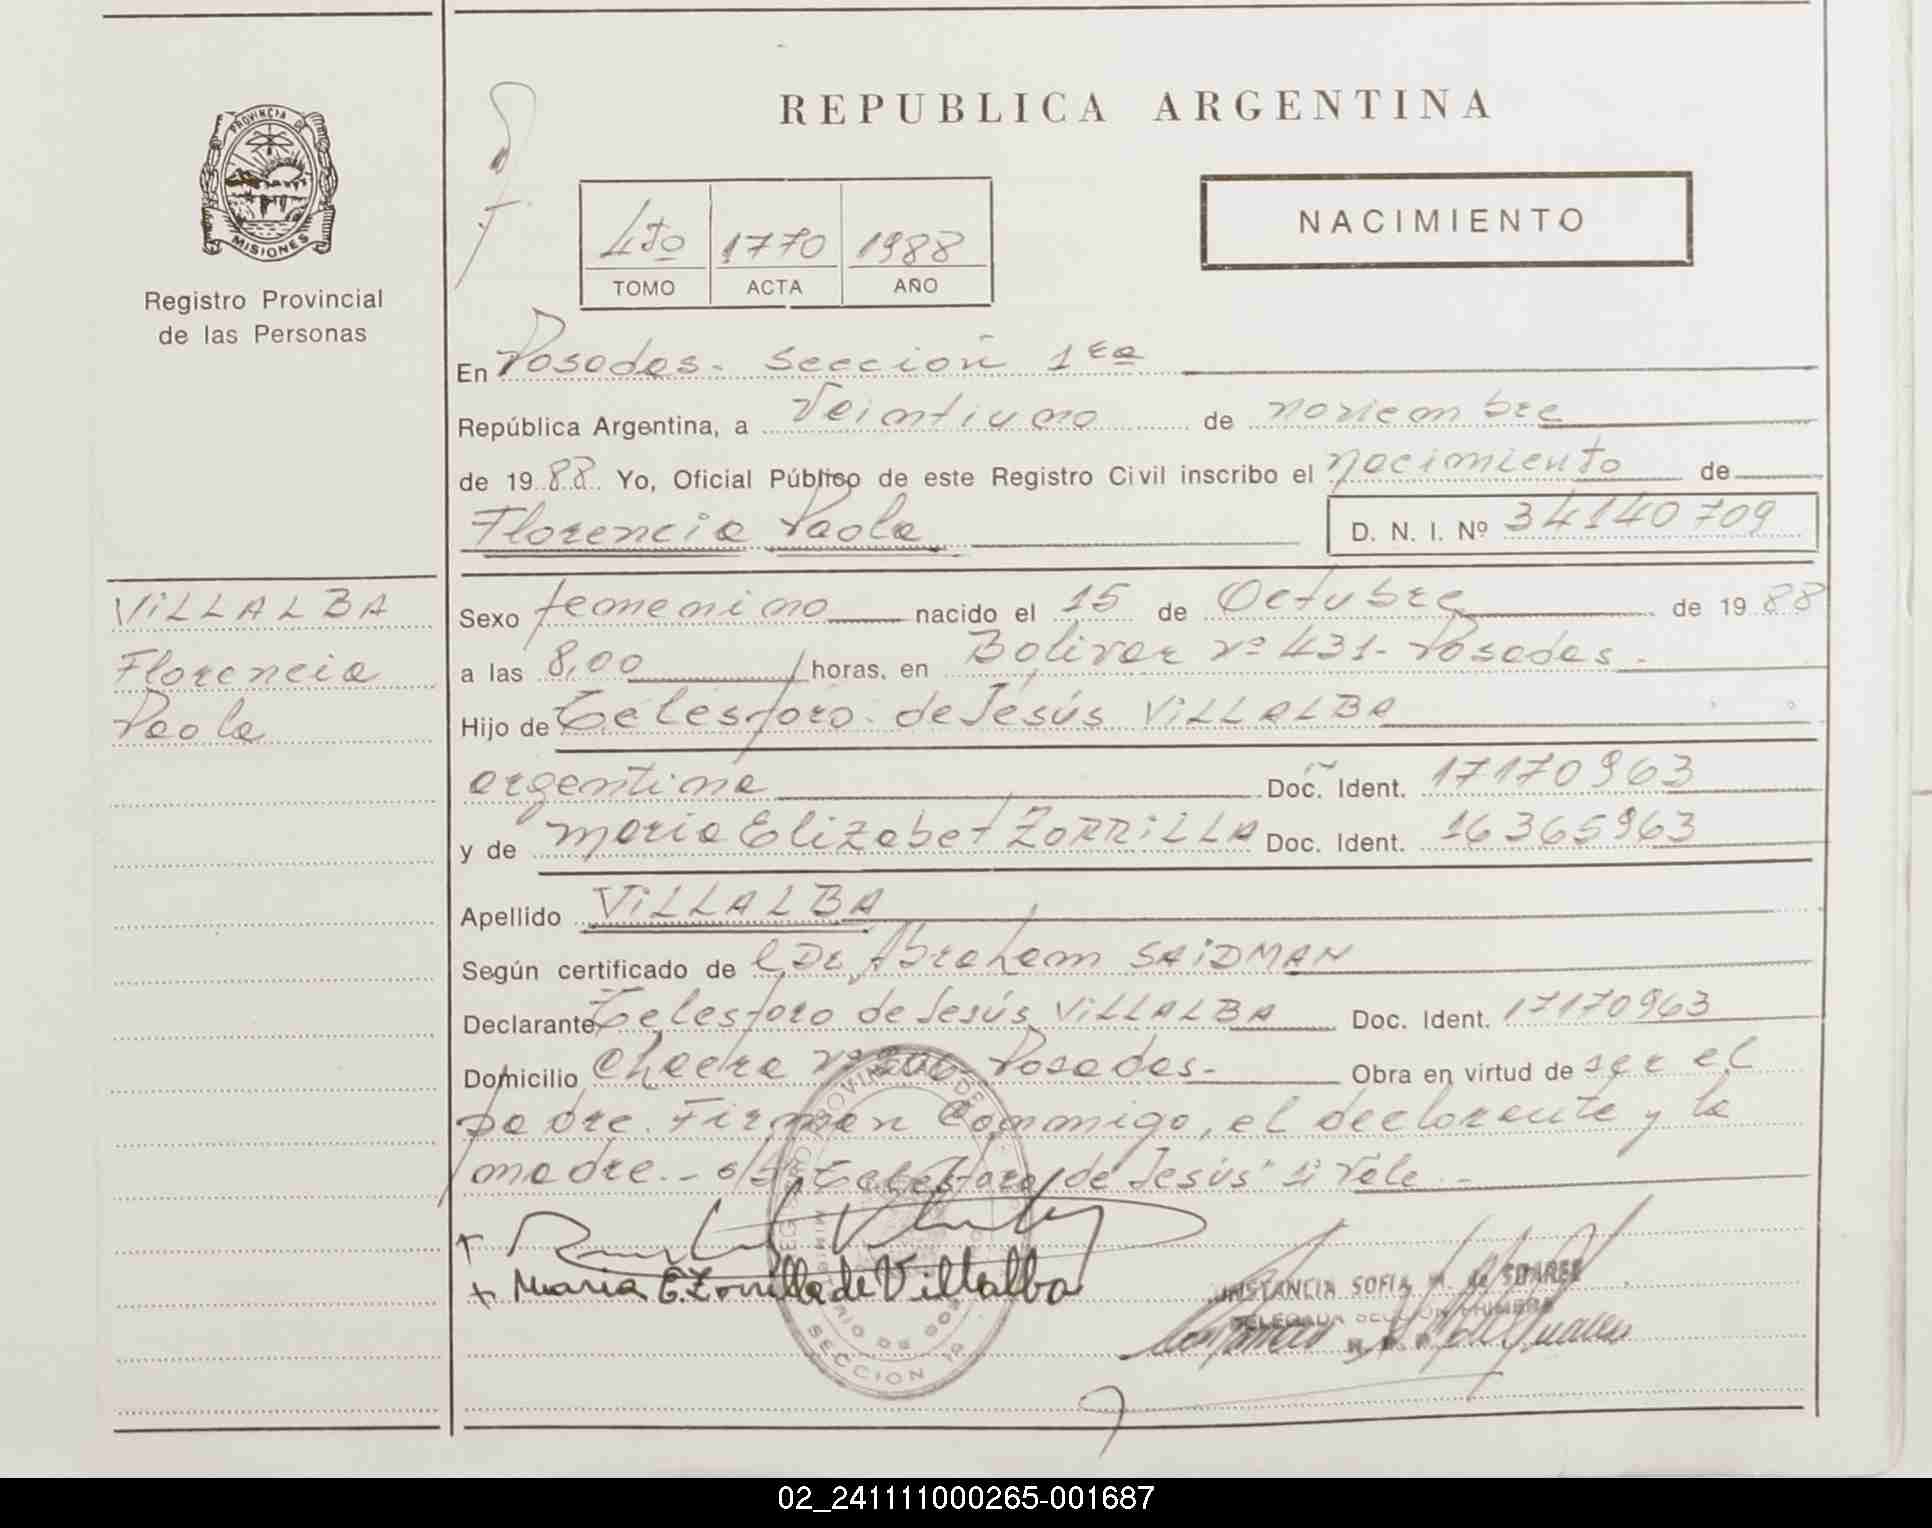 REPUBLICA ARGENTINA
PROVINCIA DE
MISIONES
Registro Provincial
de las Personas
NACIMIENTO
4to 1770 1988
TOMO ACTA AÑO
En Posadas. Sección 1ra
República Argentina, a Veintiuno de noviembre
de 1988 Yo, Oficial Público de este Registro Civil inscribo el nacimiento de
Florencia Paola D. N. I. Nº 34140709
VILLALBA
Florencia
Paola
Sexo femenino nacido el 15 de Octubre de 1988
a las 8,00 horas, en Bolivar nº 431- Posadas.
Hijo de Telesforo de Jesús VILLALBA
argentina Doc. Ident. 17170963
y de Maria Elizabet ZORRILLA Doc. Ident. 16365963
Apellido VILLALBA
Según certificado de Dr. Abraham SAIDMAN
Declarante Telesforo de Jesús VILLALBA Doc. Ident. 17170963
Domicilio Chacra nº Posadas.- Obra en virtud de ser el
padre. Firman Conmigo, el declarante y la
madre.- Telesforo de Jesús" Vale.-
Maria E. Zorrilla de Villalba
SOFIA M. de SOARES
DELEGADA SECCION PRIMERA
SECCION 1a
02_241111000265-001687